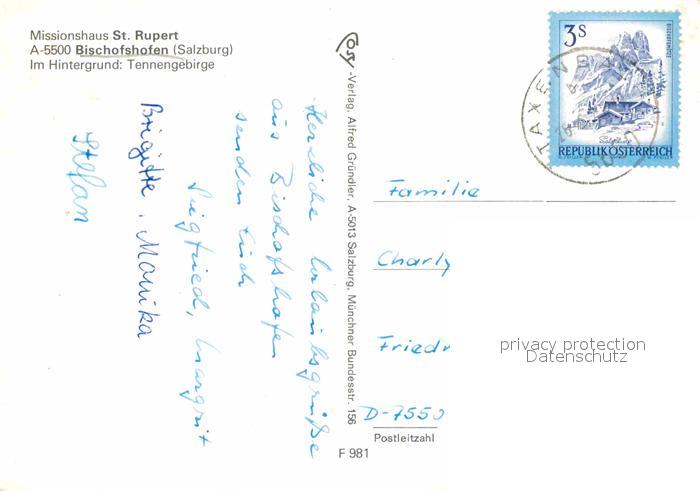 Missionshaus St. Rupert
A-5500 Bischofshofen (Salzburg)
Im Hintergrund: Tennengebirge
Cosy
-Verlag, Alfred Gründler, A-5013 Salzburg, Münchner Bundesstr. 156
Herzliche Urlaubsgrüße
aus Bischofshofen
senden Euch
Siegfried, Margrit
Brigitte, Monika
Stefan
3 S
REPUBLIK ÖSTERREICH
TAXENB
Familie
Charly
Friedr
privacy protection
Datenschutz
D-7550
Postleitzahl
F 981